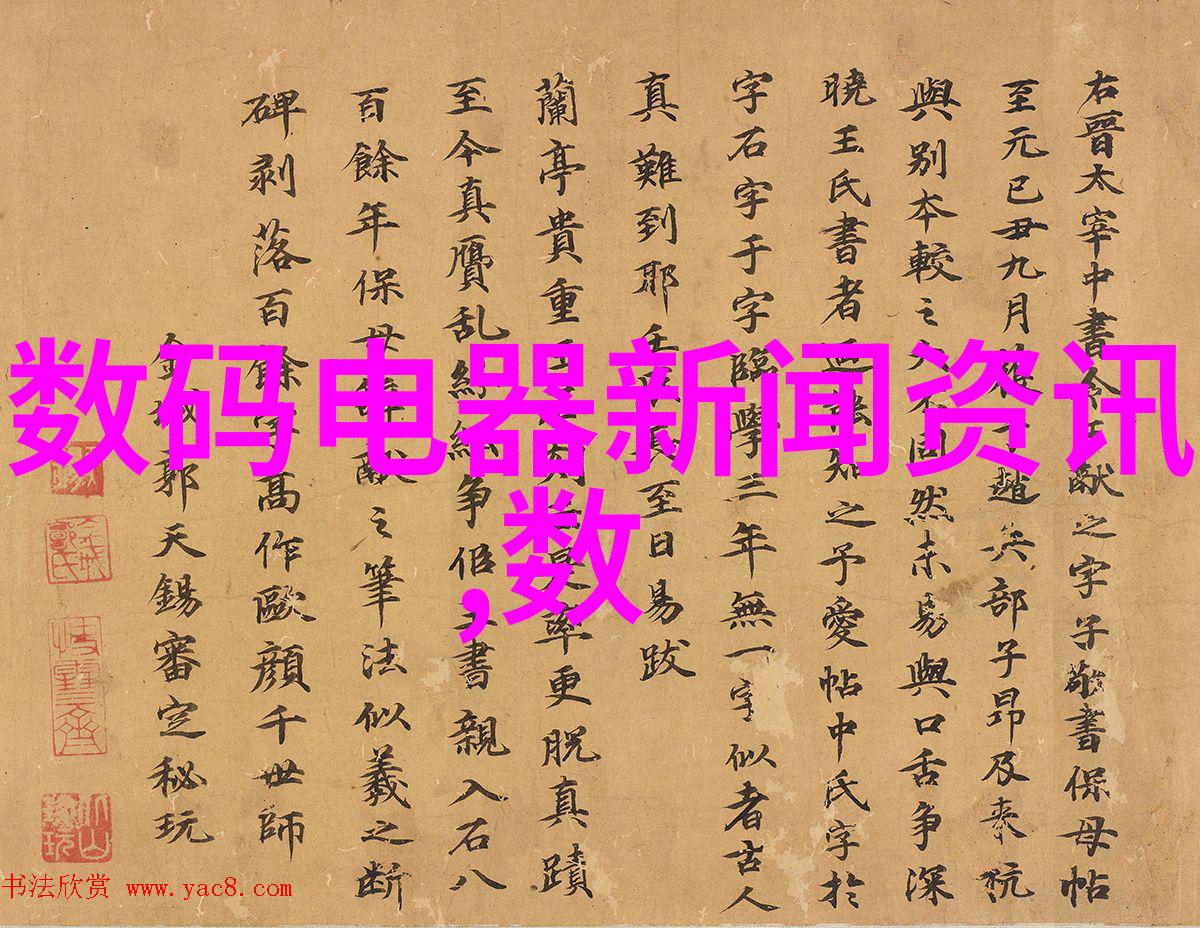 右晉太宰中書令王獻之字子敬書保母帖
至元已丑九月
趙兵部子昂及來杭
與別本較之大不同然未易與口舌爭深
曉王氏書者
知之予愛帖中氏字於
字石字于字臨學三年無一字似者古人
真難到耶
至日易跋
蘭亭貴重
率更脫真蹟
至今真贗乱紛紛爭佀
書親入石八
百餘年保母
之筆法似羲之斷
碑剥落百餘
高作歐顏千世師
郭天錫審定秘玩
数码电器新闻资讯
,数
书法欣赏 www.yac8.com